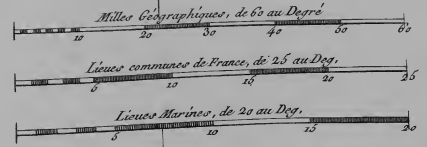 Milles Géographiques, de 60 au Degré
10 20 30 40 50 60
Lieues communes de France, de 25 au Deg.
5 10 15 20 25
Lieues Marines, de 20 au Deg.
5 10 15 20